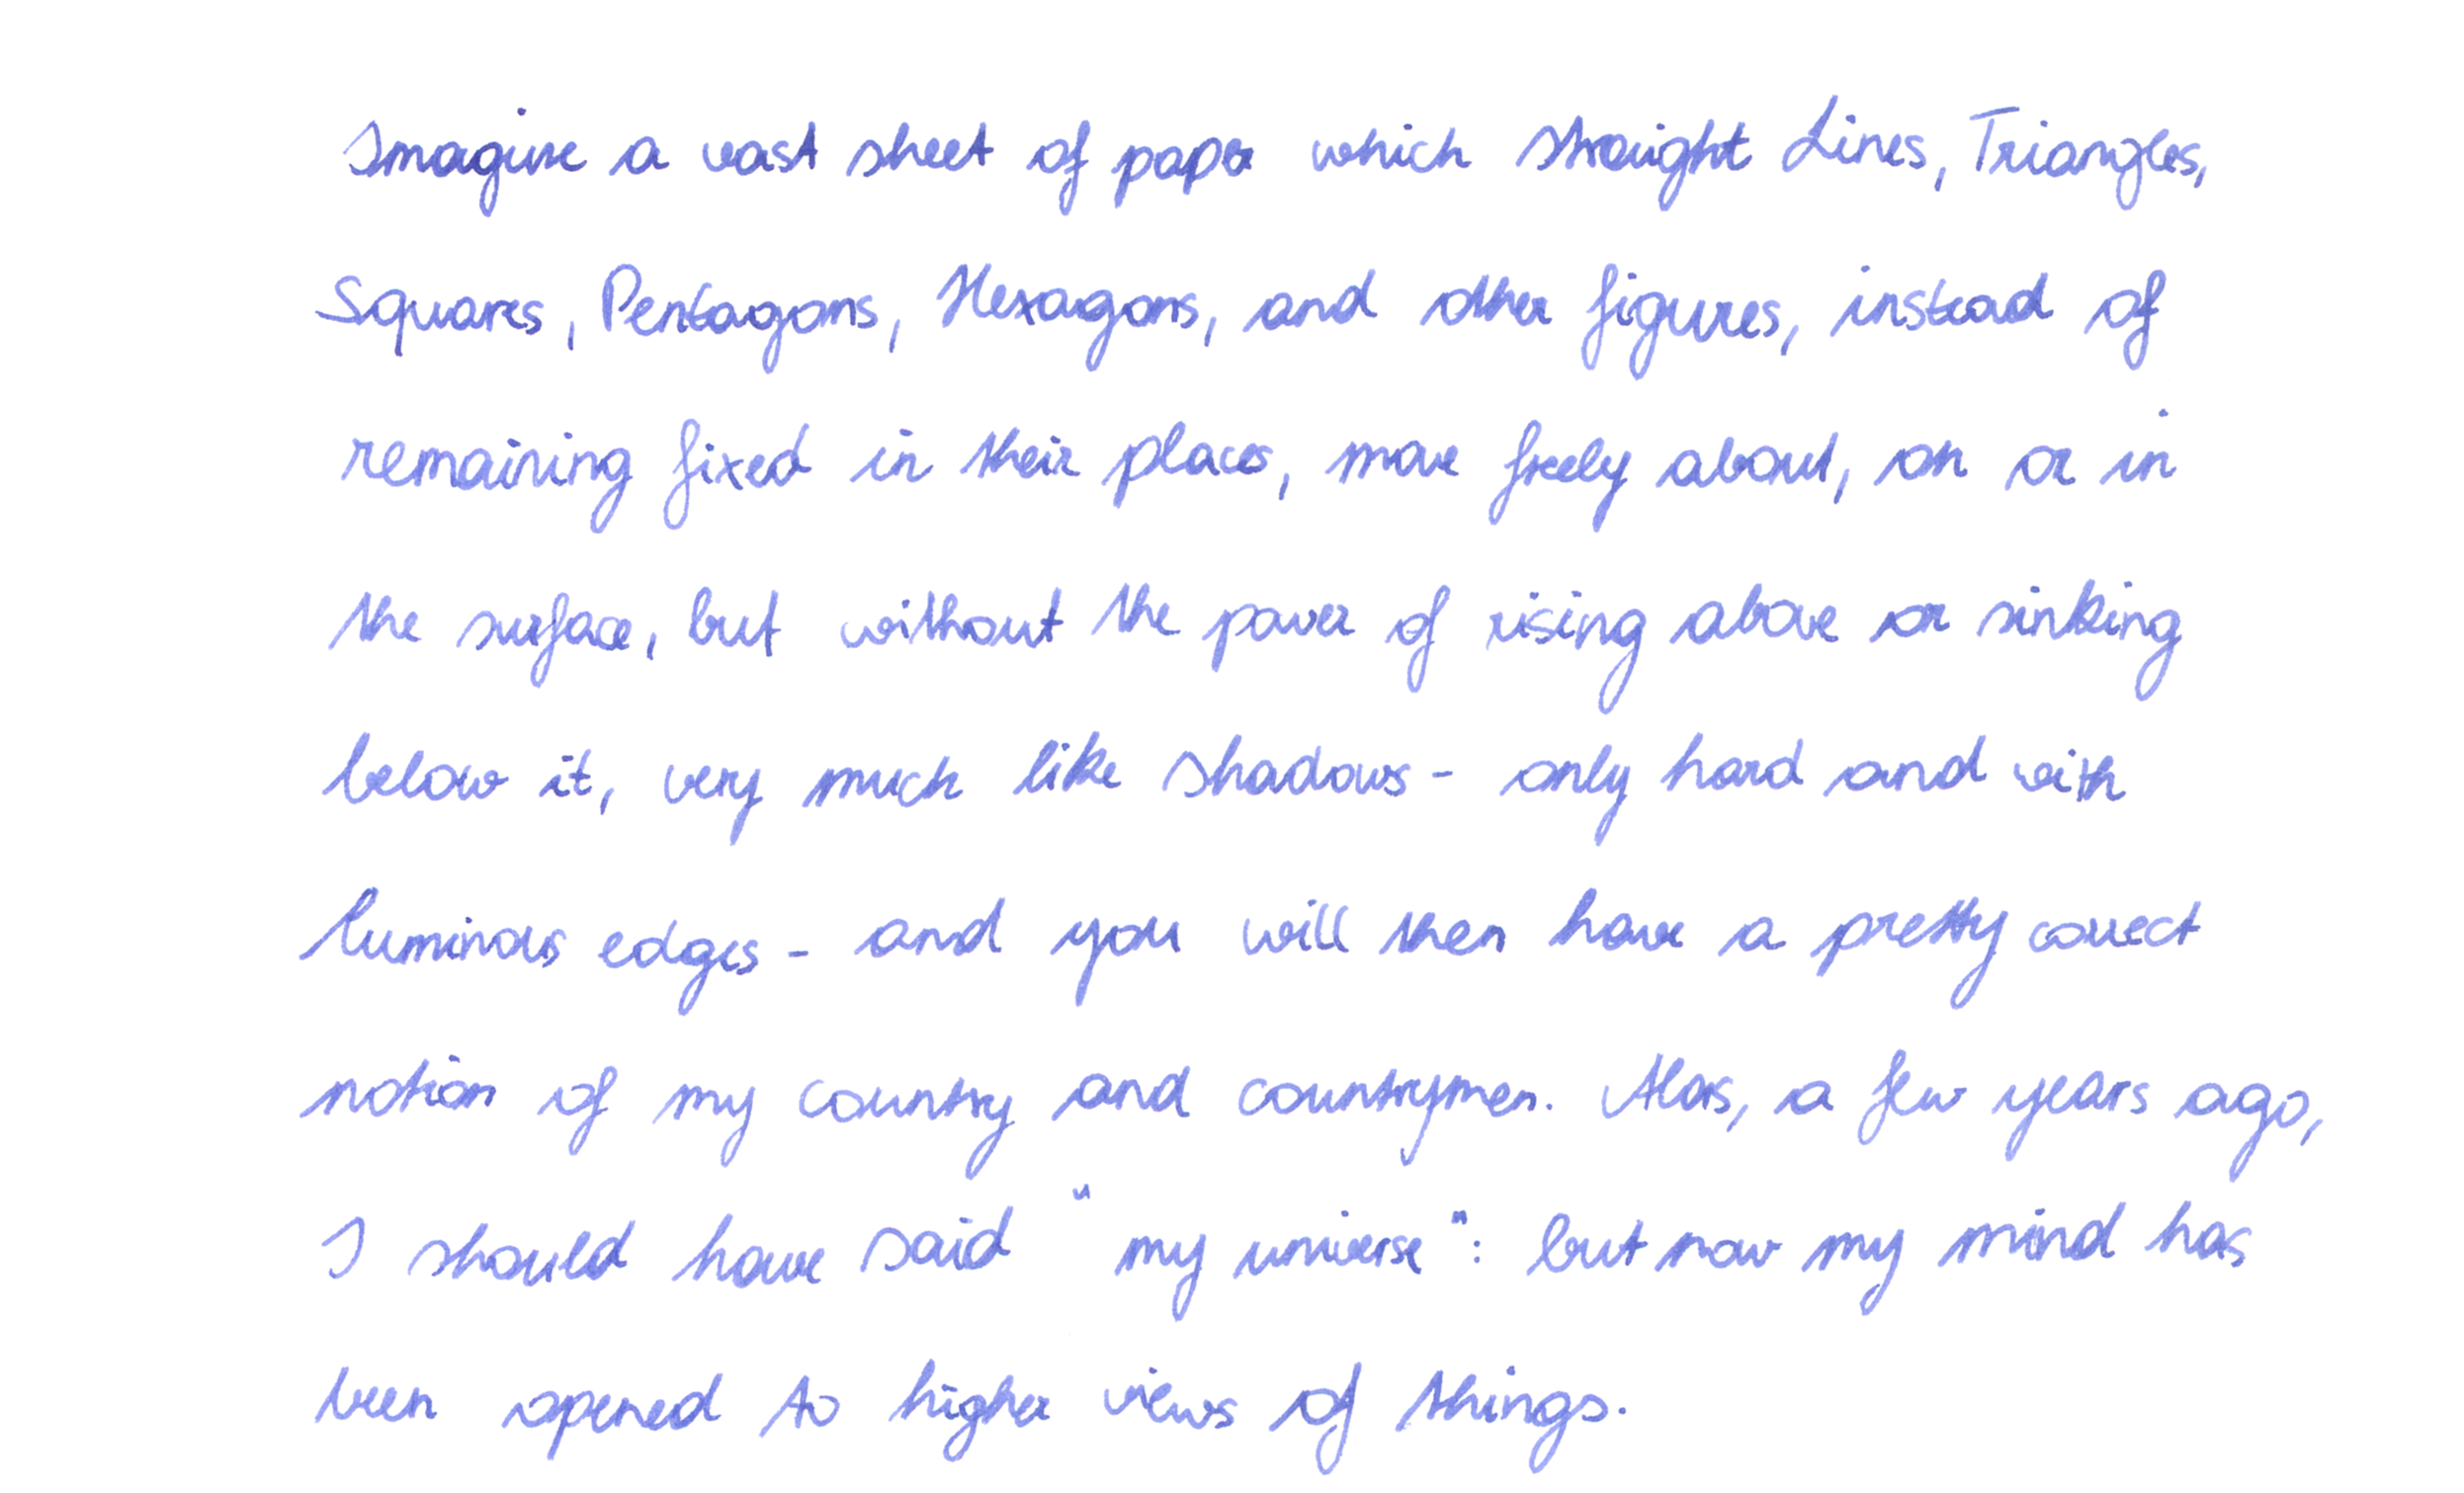 Imagine a vast sheet of paper which straight Lines, Triangles,
Squares, Pentagons, Hexagons, and other figures, instead of
remaining fixed in their places, move freely about, on or in
the surface, but without the power of rising above or sinking
below it, very much like shadows - only hard and with
luminous edges - and you will then have a pretty correct
notion of my country and countrymen. Alas, a few years ago,
I should have said "my universe": but now my mind has
been opened to higher views of things.